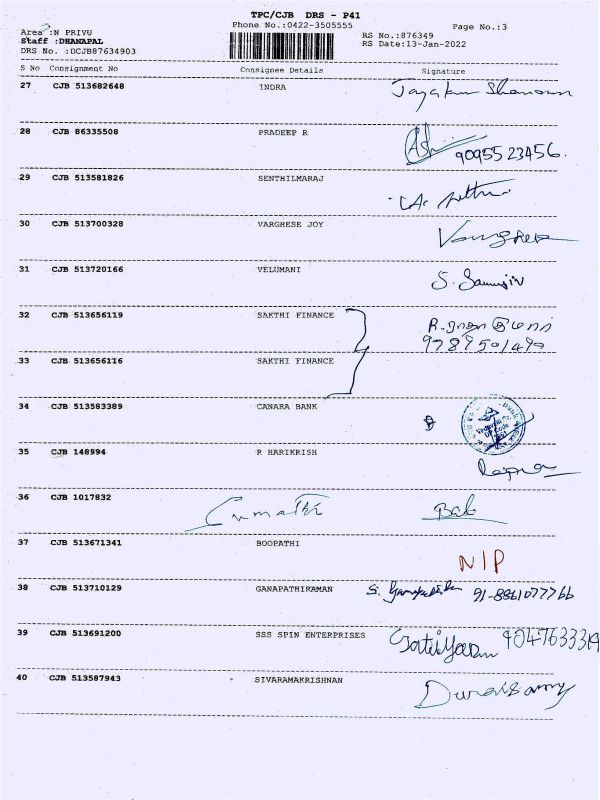 TPC/CJB DRS - P41
Phone No.:0422-3505555
Page No.:3
Area :N PRIVU
Staff :DHANAPAL
DRS No. :DCJB87634903
RS No.:876349
RS Date:13-Jan-2022
S No Consignment No Consignee Details Signature
27 CJB 513682648 INDRA
28 CJB 86335508 PRADEEP R 9095523456.
29 CJB 513581826 SENTHILMARAJ
30 CJB 513700328 VARGHESE JOY
31 CJB 513720166 VELUMANI
32 CJB 513656119 SAKTHI FINANCE
33 CJB 513656116 SAKTHI FINANCE
34 CJB 513583389 CANARA BANK
35 CJB 148994 R HARIKRISH
36 CJB 1017832
37 CJB 513671341 BOOPATHI NIP
38 CJB 513710129 GANAPATHIRAMAN 91-8861077766
39 CJB 513691200 SSS SPIN ENTERPRISES
40 CJB 513587943 SIVARAMAKRISHNAN Duraisamy